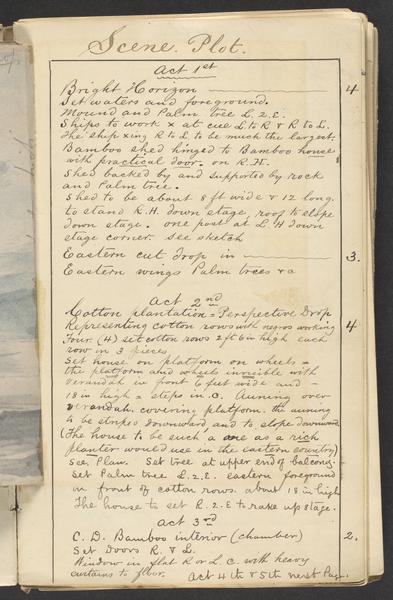 Scene. Plot.
Act 1st
Bright Horizon 4
Set waters and foreground.
Mound and Palm tree L.2.E.
Ships to work x at cue L to R & R to L.
The ship xing R to L to be much the largest
Bamboo shed hinged to Bamboo house
with practical door. on R.H.
Shed backed by and supported by rock
and Palm tree.
Shed to be about 8 ft wide & 12 long.
to stand R.H. down stage, roof to slope
down stage. one post at L H down
stage corner. see sketch
Eastern cut drop in 3.
Eastern wings Palm trees &a
Act 2nd
Cotton plantation = Perspective Drop 4
Representing cotton rows with negros working
Four (4) set cotton rows 2 ft 6 in high each
row in 3 pieces
Set house on platform on wheels =
the platform and wheels invisible with
verandah in front 6 feet wide and -
18 in high = steps in C. Auning over
verandah. covering platform. the auning
to be striped downward, and to slope downward
(The house to be such a one as a rich
planter would use in the eastern country)
See. Plan. Set tree at upper end of balcony.
Set Palm tree L.2.E. eastern foreground
in front of cotton rows. about 18 in high
The house to set R.2.E to rake up stage.
Act 3rd
C. D. Bamboo interior (chamber) 2.
Set Doors R. & L.
Window in flat R or L. C. with heavy
curtains to floor. Act 4th & 5th next Page